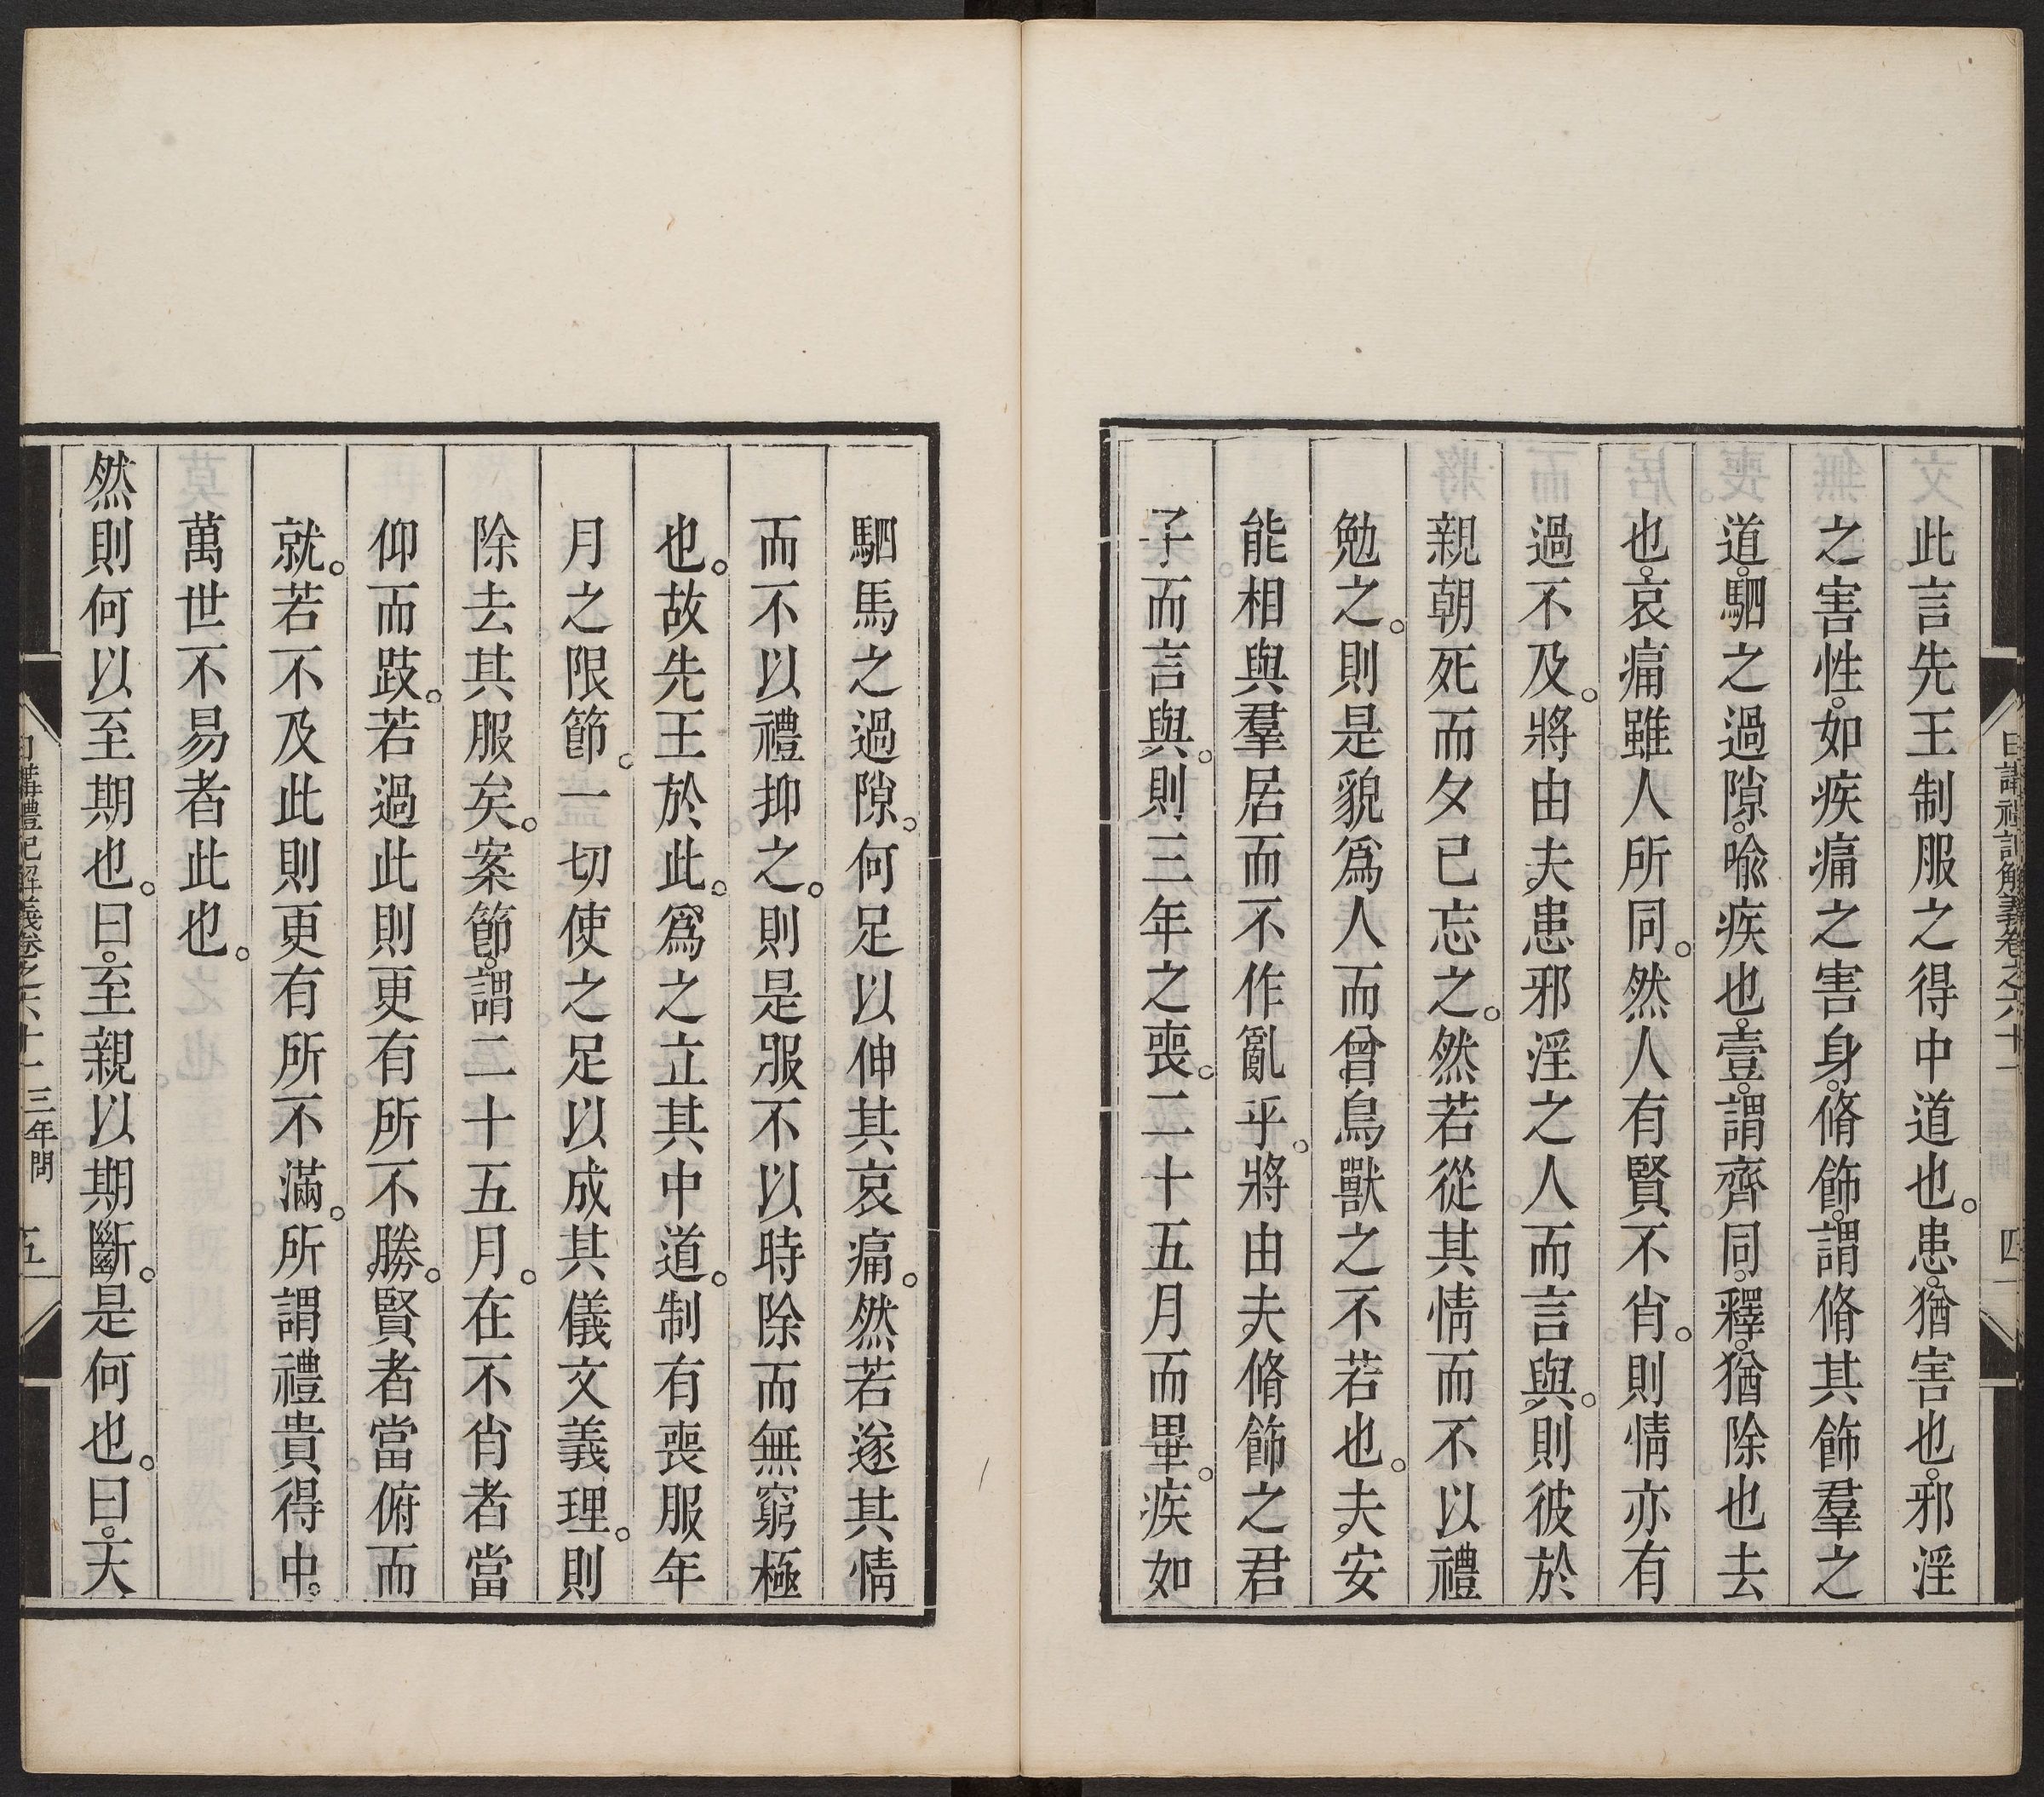 日講禮記解義卷之六十一 四
此言先王制服之得中道也。患。猶害也。邪淫
之害性。如疾痛之害身。脩飾。謂脩其飾羣之
道。駟之過隙。喻疾也。壹。謂齊同。釋。猶除也去
也。哀痛雖人所同。然人有賢不肖。則情亦有
過不及。將由夫患邪淫之人而言與。則彼於
親朝死而夕已忘之。然若從其情而不以禮
勉之。則是貌爲人而曾鳥獸之不若也。夫安
能相與羣居而不作亂乎。將由夫脩飾之君
子而言與。則三年之喪。二十五月而畢。疾如
駟馬之過隙。何足以伸其哀痛。然若遂其情
而不以禮抑之。則是服不以時除而無窮極
也。故先王於此。爲之立其中道。制有喪服年
月之限節。一切使之足以成其儀文義理。則
除去其服矣。案節。謂二十五月。在不肖者當
仰而跂。若過此則更有所不勝。賢者當俯而
就。若不及此則更有所不滿。所謂禮貴得中。
萬世不易者此也。
然則何以至期也。曰。至親以期斷。是何也。曰。天
日講禮記解義卷之六十一 三年問 五